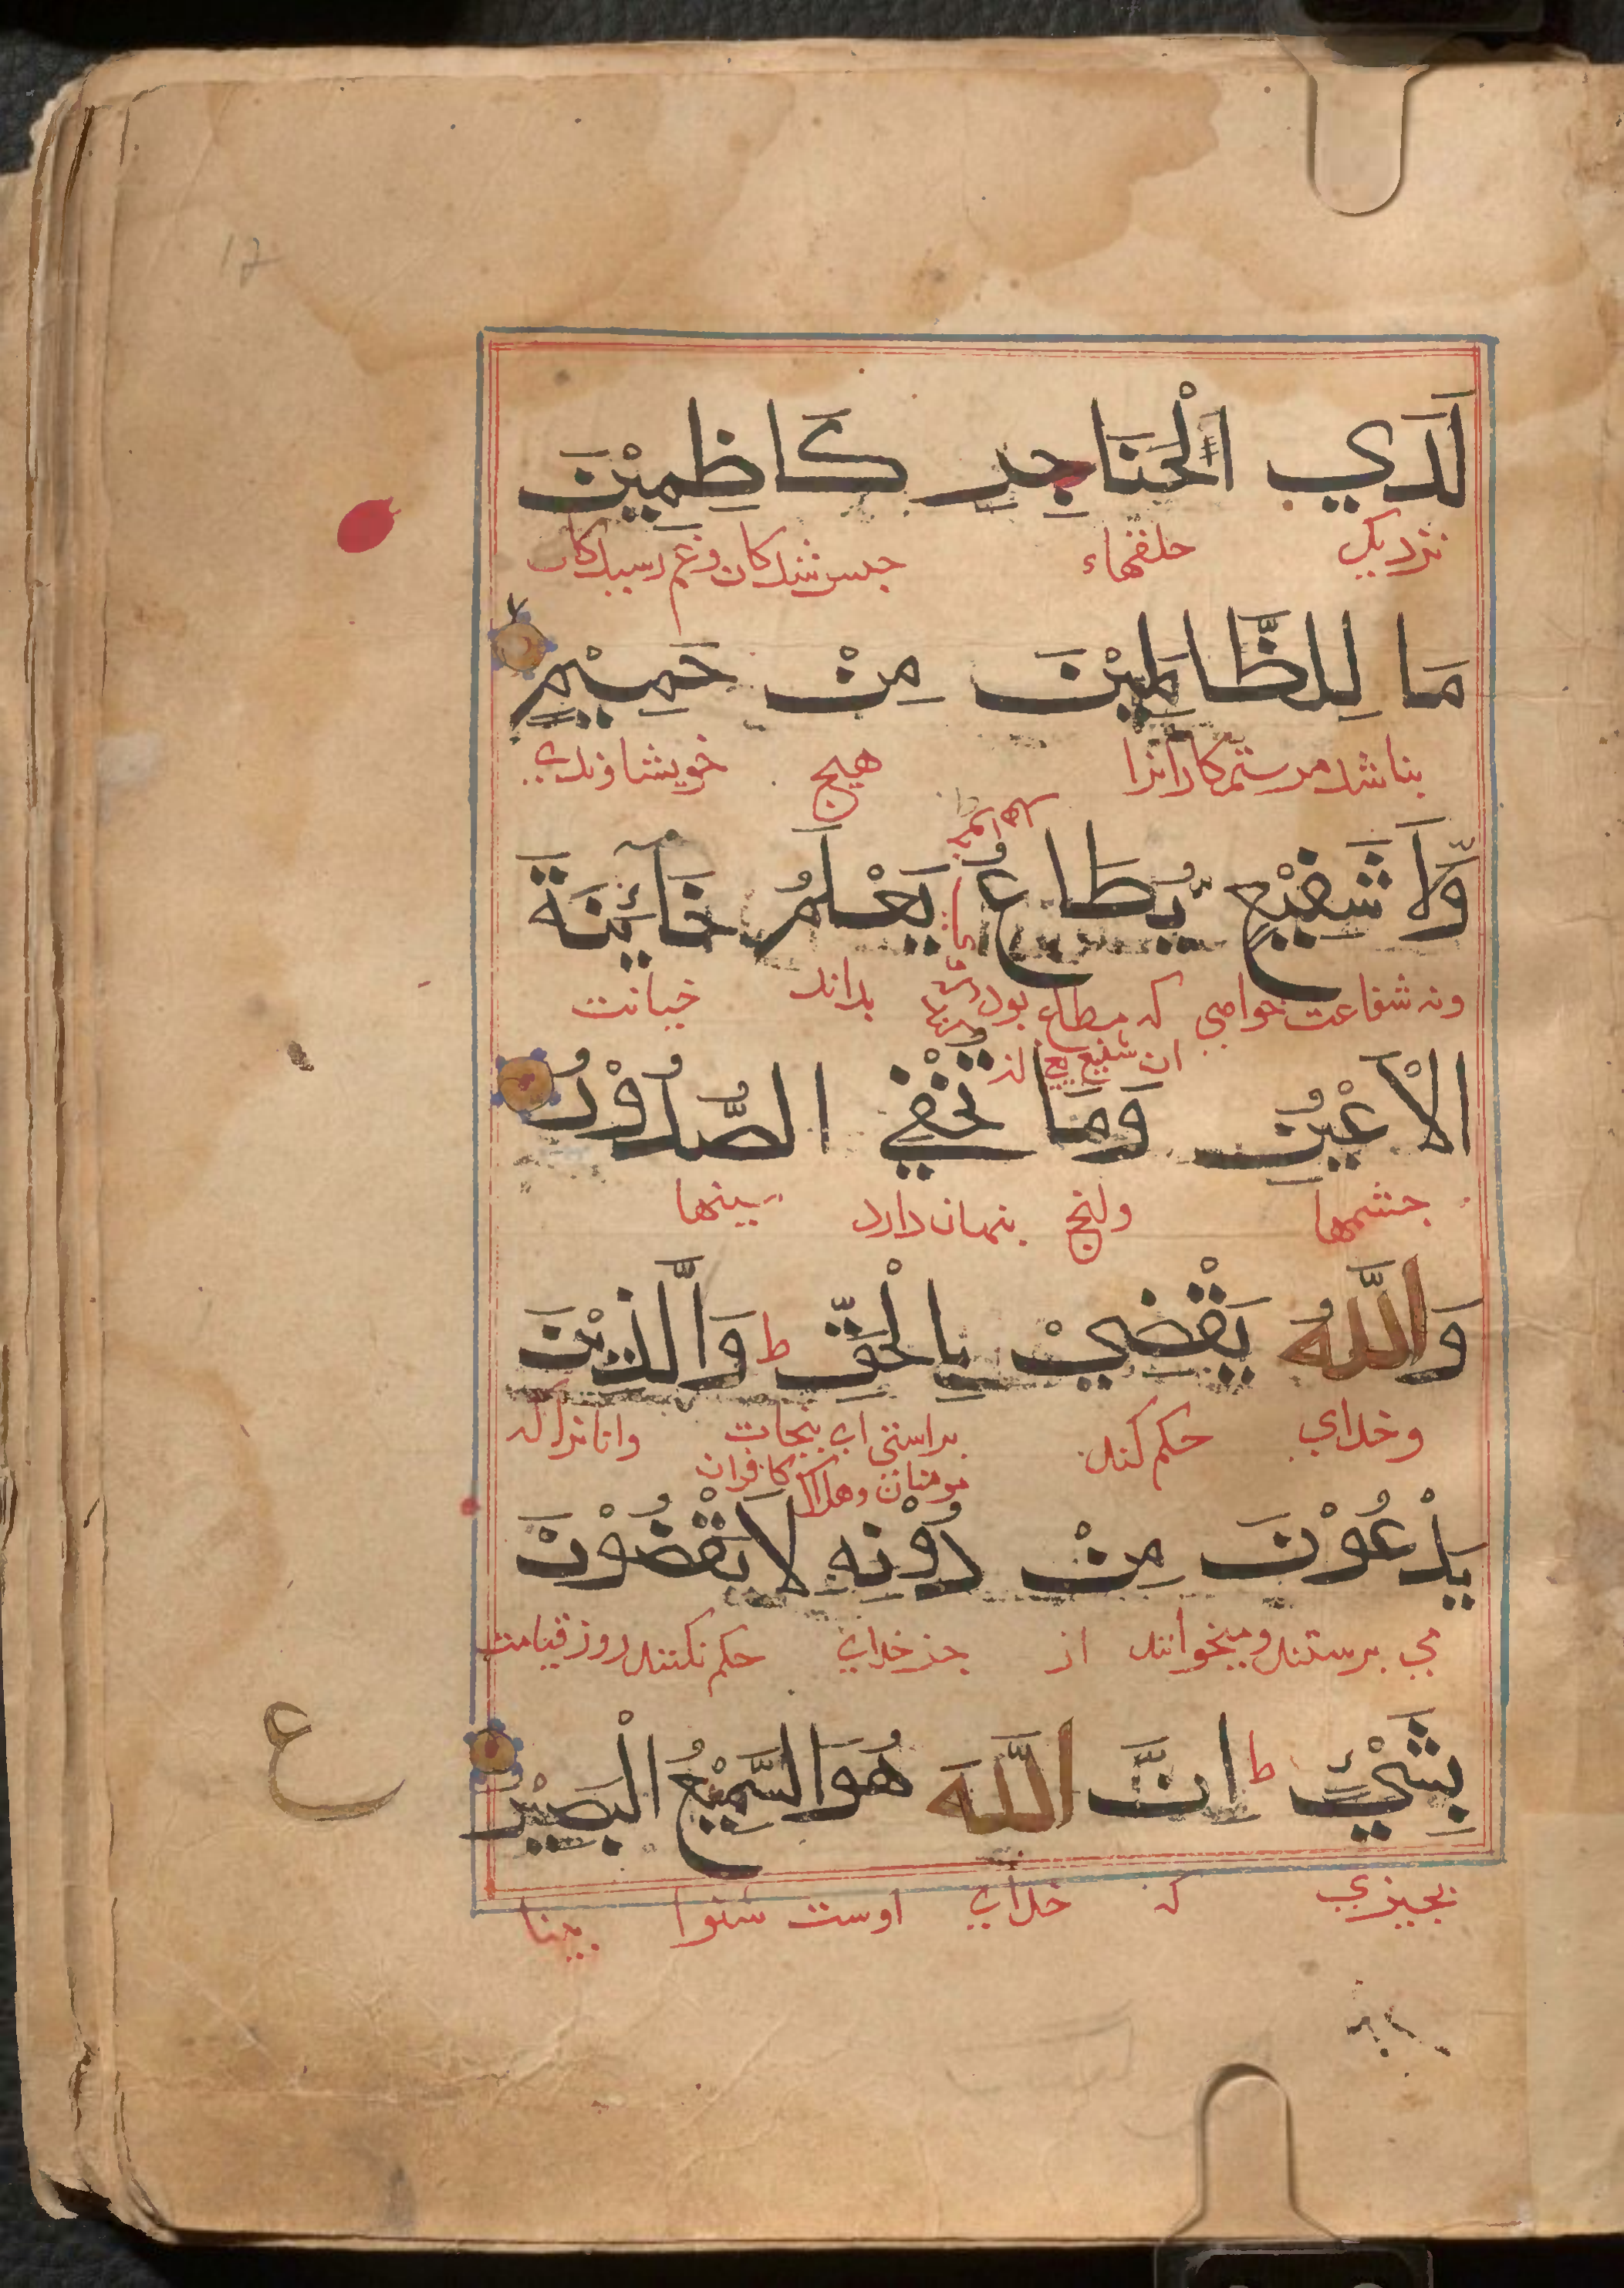 لَدَي الْحَنَاجِرِ كَاظِمِيْنَ
نزديك حلقهاء حبس شدكان وغم رسيدكان
مَا لِلظَّالِمِيْنَ مِنْ حَمِيْمٍ
نباشد مر ستمكارانرا هيج خويشاوندي
وَّلَا شَفِيْعٍ يُّطَاعُ يَعْلَمُ خَآئِنَةَ
ونه شفاعت خواهي كه مطاع بود بداند خيانت
ان شفيع يع
الْاَعْيُنِ وَمَا تُخْفِي الصُّدُوْرُ
جشمها وانج بنهان دارد سينها
وَاللّٰهُ يَقْضِيْ بِالْحَقِّ ط وَالَّذِيْنَ
وخداي حكم كند براستي اي بنجات وانانرا كه
مومنان وهلاك كافران
يَدْعُوْنَ مِنْ دُوْنِهِ لَا يَقْضُوْنَ
مي برستند وميخوانند از جز خداي حكم نكنند روز قيامت
بِشَيْءٍ ط اِنَّ اللّٰهَ هُوَ السَّمِيْعُ الْبَصِيْرُ
ع
بجيزي كه خداي اوست شنوا بينا